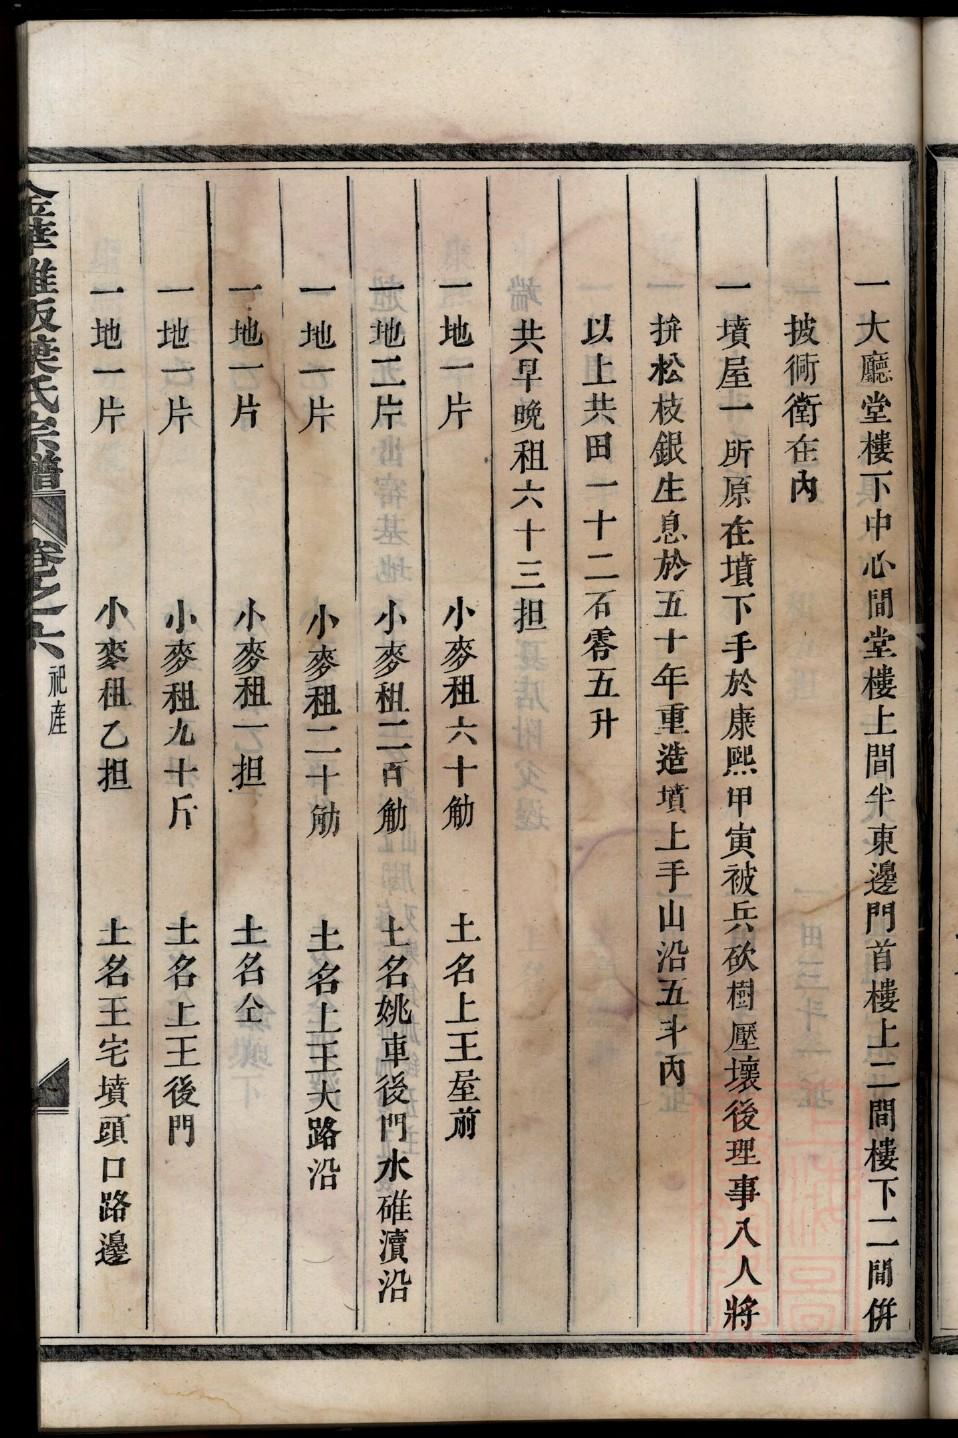 一大廳堂樓下中心間堂樓上間半東邊門首樓上二間樓下二間併
披衕衖在內
一墳屋一所原在墳下手於康熙甲寅被兵砍樹壓壞後理事八人將
拚松枝銀生息於五十年重造墳上手山沿五斗內
以上共田一十二石零五升
共早晚租六十三担
一地一片 小麥租六十觔 土名上王屋前
一地一片 小麥租二百觔 土名姚車後門水碓瀆沿
一地一片 小麥租二十觔 土名上王大路沿
一地一片 小麥租一担 土名仝
一地一片 小麥租九十斤 土名上王後門
一地一片 小麥租乙担 土名王宅墳頭口路邊
金華 畈葉氏宗譜 卷之六 祀産